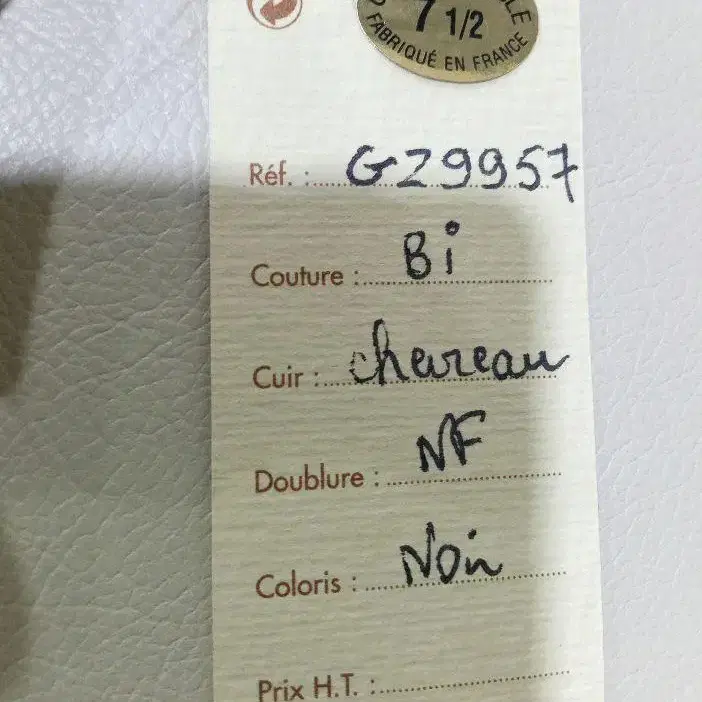 7 1/2
FABRIQUÉ EN FRANCE
Réf. : GZ9957
Couture : Bi
Cuir : chevreau
Doublure : NF
Coloris : Noir
Prix H.T. :